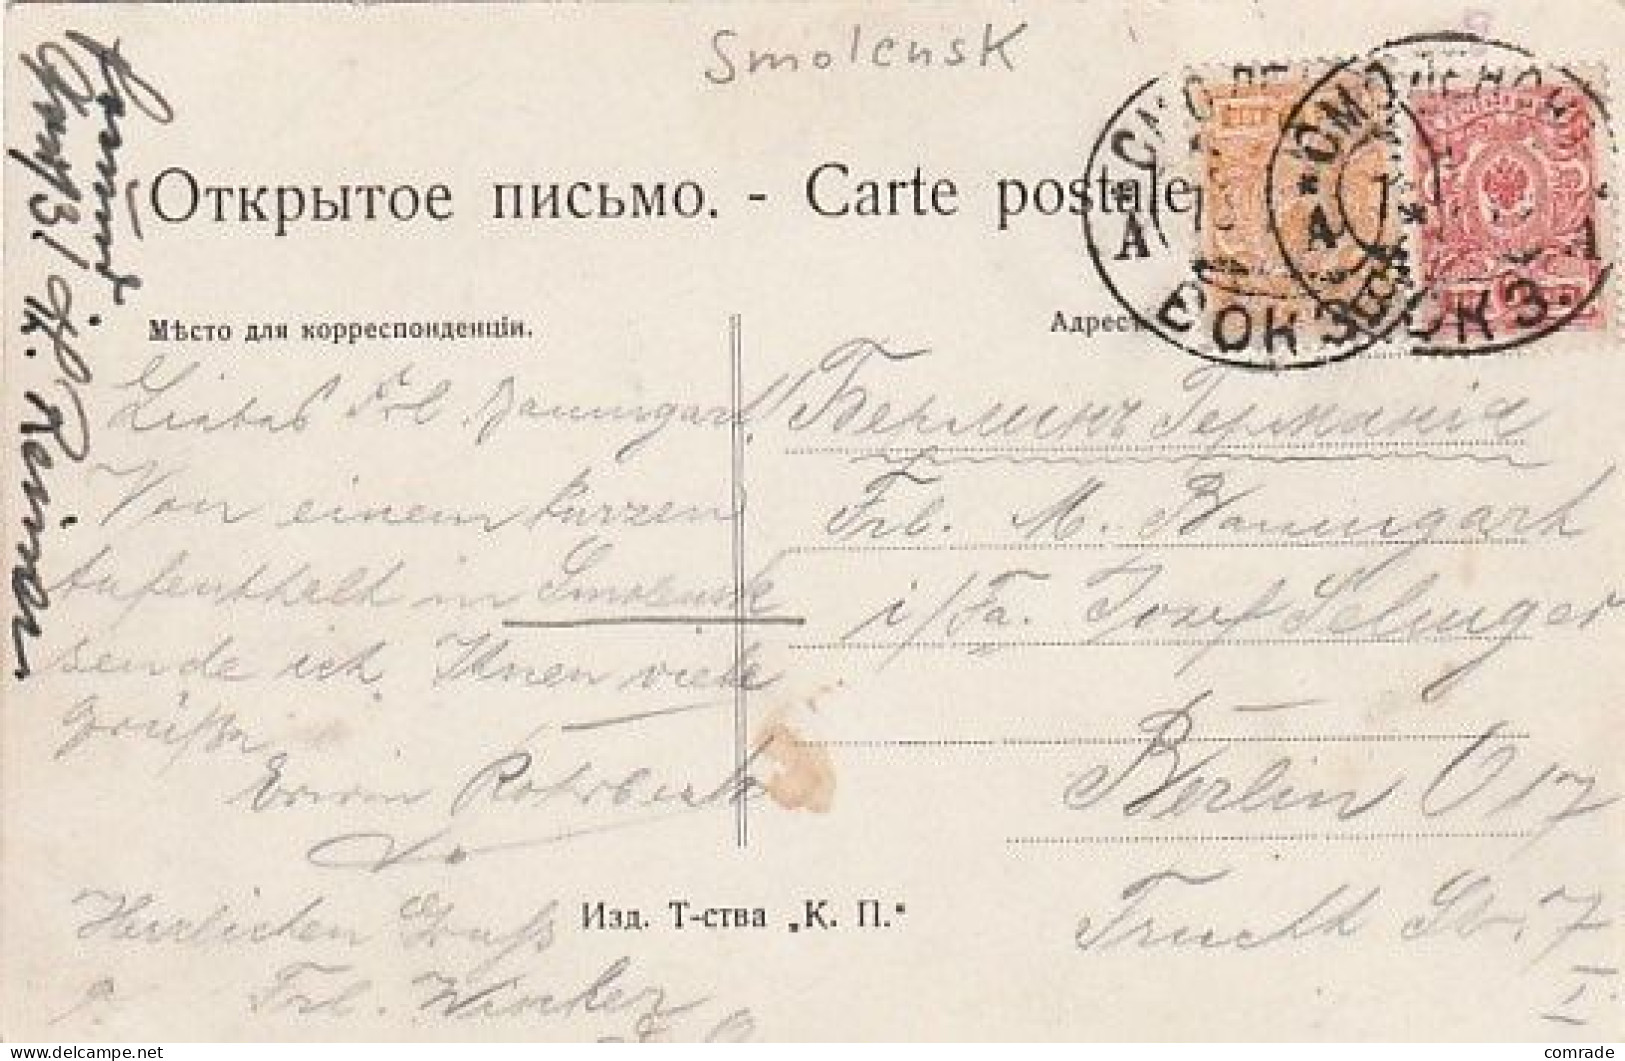 Smolensk
Открытое письмо. - Carte postale
Мѣсто для корреспонденціи.
Адрес
Liebes Frl. Baumgart!
Von einem kurzen
Aufenthalt in Smolensk
sende ich Ihnen viele
Grüße
Erwin Rohrbeck
Herzlichen Gruß
Frl. Wincker
Берлинъ Германія
Frl. M. Baumgart
i/Fa. Josef Selinger
Berlin O 17
Frucht Str. 7
I.
Изд. Т-ства „К. П."
Gruß H. Reiman
СМОЛЕНСКЪ
А А
ВОКЗ.
СМОЛЕНСКЪ
А А
ВОКЗ.
delcampe.net
comrade